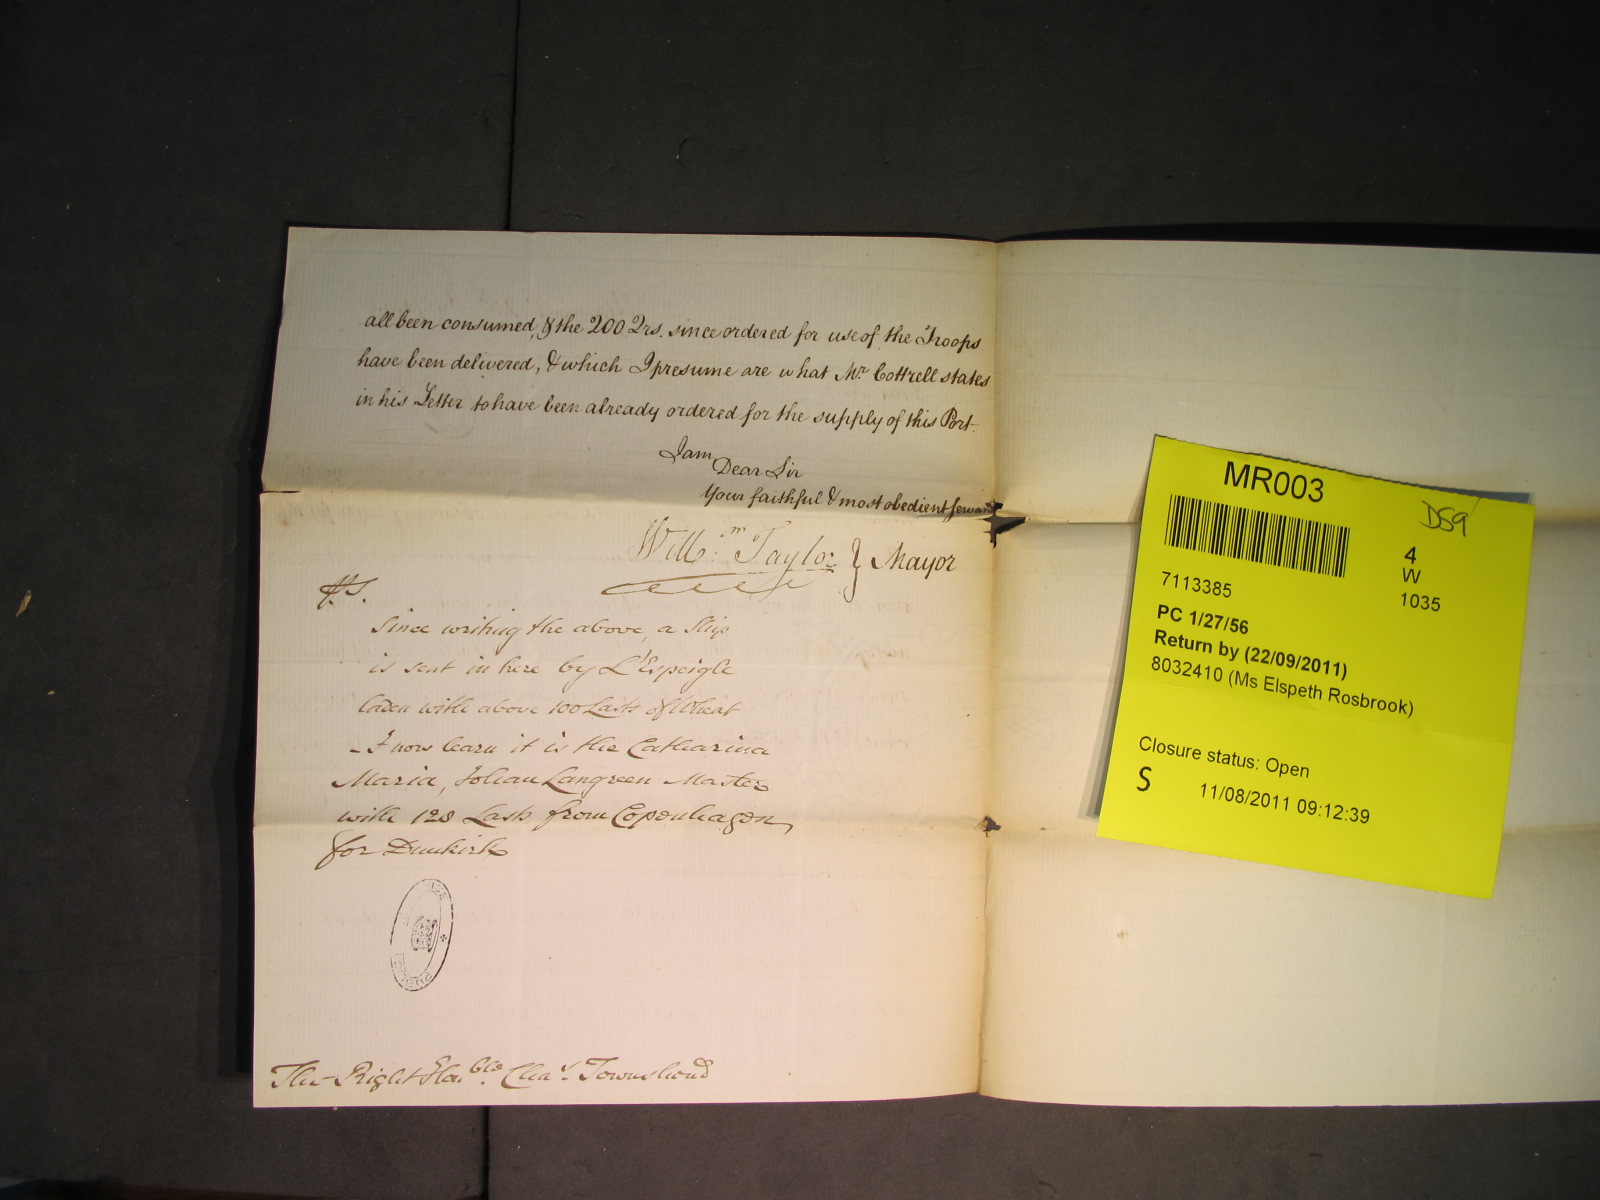 all been consumed, & the 200 Qrs. since ordered for use of the Troops
have been delivered, & which I presume are what Mr. Cottrell states
in his Letter to have been already ordered for the supply of this Port.
I am
Dear Sir
Your faithful & most obedient Servant
Willm. Taylor } Mayor
P.S.
Since writing the above, a Ship
is sent in here by L'Espeigle
laden with above 100 Lasts of Wheat
- I now learn it is the Catharina
Maria, Johan Langreen Master
with 128 Lasts from Copenhagen,
for Dunkirk
The Right Honble. Chas. Townshend
MR003
D59
4
W
1035
7113385
PC 1/27/56
Return by (22/09/2011)
8032410 (Ms Elspeth Rosbrook)
Closure status: Open
S
11/08/2011 09:12:39